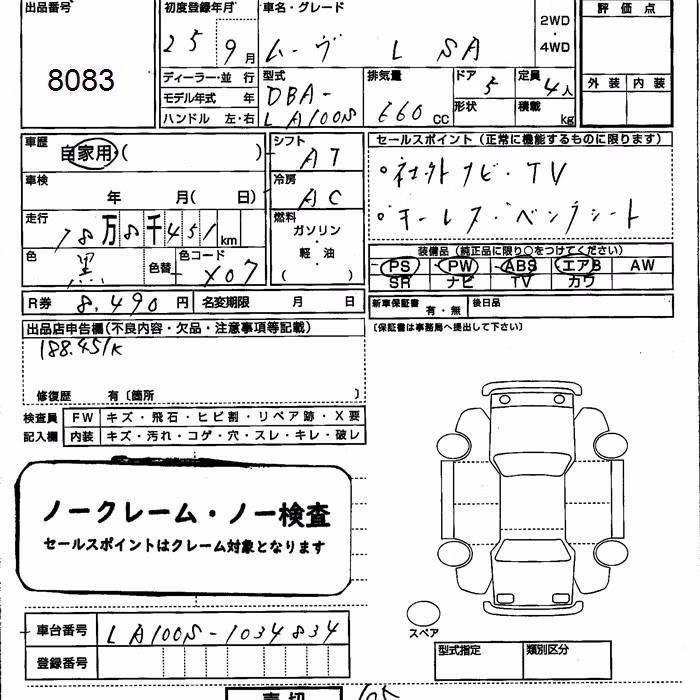 出品番号 初度登録年月 車名・グレード 評価点
8083 25 9月 ムーヴ L SA 2WD・4WD
ディーラー・並 行 型式 排気量 ドア 定員 外装 内装
モデル年式 年 DBA- 5 4人
ハンドル 左・右 LA100S 660 cc 形状 積載 kg
車歴 自家用( ) シフト AT セールスポイント(正常に機能するものに限ります)
車検 年 月( 日) 冷房 AC 。社外ナビ・TV
走行 18万8千451km 燃料 ガソリン・軽油( ) 。キーレス・ベンチシート
色 黒 色替 色コード X07 装備品(純正品に限り○をつけてください)
PS PW ABS エアB AW
SR ナビ TV カワ
R券 8,490円 名変期限 月 日 新車保証書 有・無 後日品
出品店申告欄(不良内容・欠品・注意事項等記載) (保証書は事務局へ提出して下さい)
188.451K
修復歴 有〔箇所 〕
検査員 FW キズ・飛石・ヒビ割・リペア跡・X要
記入欄 内装 キズ・汚れ・コゲ・穴・スレ・キレ・破レ
ノークレーム・ノー検査
セールスポイントはクレーム対象となります
車台番号 LA100S-1034834
スペア
登録番号 型式指定 類別区分